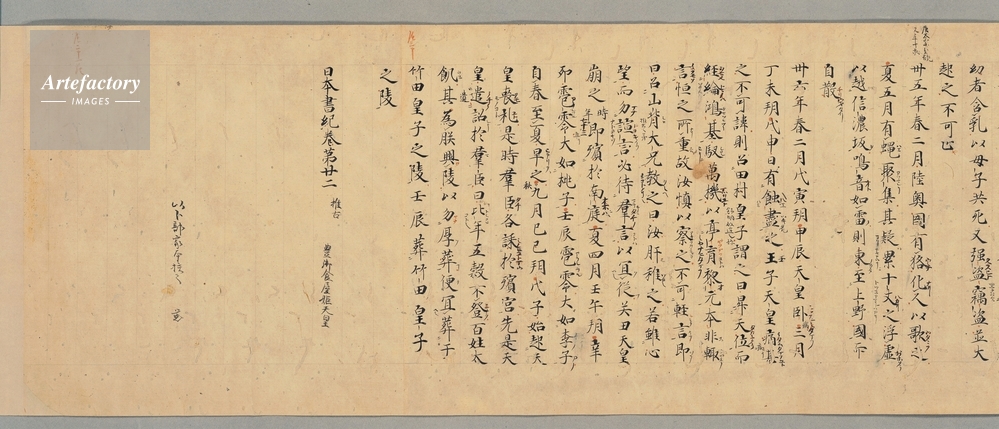 幼者含乳以母子共死又强盗竊盗並大
起之不可止
卅五年春二月陸奥國有狢化人以歌之
夏五月有蠅聚集其凝累十丈之浮虚
以越信濃坂鳴音如雷則東至上野國而
自散
卅六年春二月戊寅朔甲辰天皇臥病三月
丁未朔戊申日有蝕盡之壬子天皇痛甚
之不可諱則召田村皇子謂之曰昇天位而
經綸鴻基馭萬機以亭育黎元本非輙
言恒之所重故汝慎以察之不可輕言即日
召山背大兄教之曰汝肝稚之若雖心
望而勿諠言必待羣言以宜從癸丑天皇
崩之時即殯於南庭夏四月壬午朔辛
卯雹零大如桃子壬辰雹零大如李子
自春至夏旱之秋九月己巳朔戊子始起天
皇喪礼是時羣臣各誄於殯宮先是天
皇遺詔於羣臣曰比年五穀不登百姓大
飢其為朕興陵以勿厚葬便宜葬于
竹田皇子之陵壬辰葬竹田皇子
之陵
日本書紀卷第廿二 推古 豊御食炊屋姫天皇
Artefactory
IMAGES